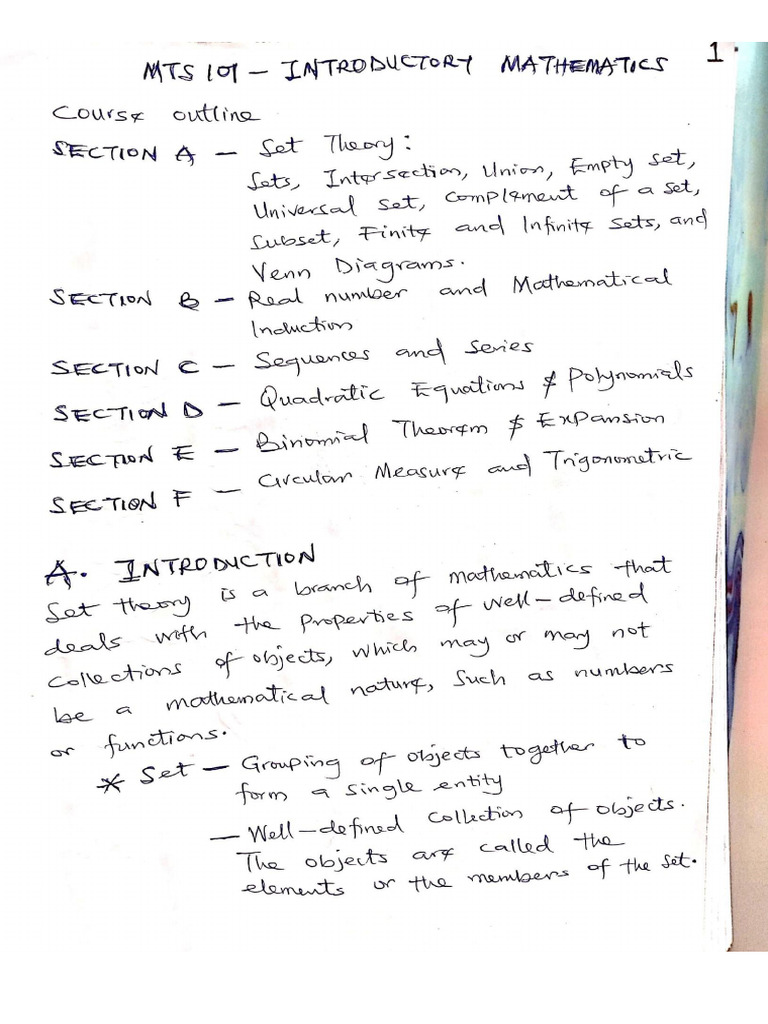 1.
MTS 101 – INTRODUCTORY MATHEMATICS
Course outline
SECTION A – Set Theory:
Sets, Intersection, Union, Empty set,
Universal set, Complement of a set,
Subset, Finite and Infinite sets, and
Venn Diagrams.
SECTION B – Real number and Mathematical
Induction
SECTION C – Sequences and series
SECTION D – Quadratic Equations & Polynomials
SECTION E – Binomial Theorem & Expansion
SECTION F – Circular Measure and Trigonometric
A. INTRODUCTION
Set theory is a branch of mathematics that
deals with the properties of well-defined
collections of objects, which may or may not
be a mathematical nature, such as numbers
or functions.
* Set – Grouping of objects together to
form a single entity
– Well-defined collection of objects.
The objects are called the
elements or the members of the set.